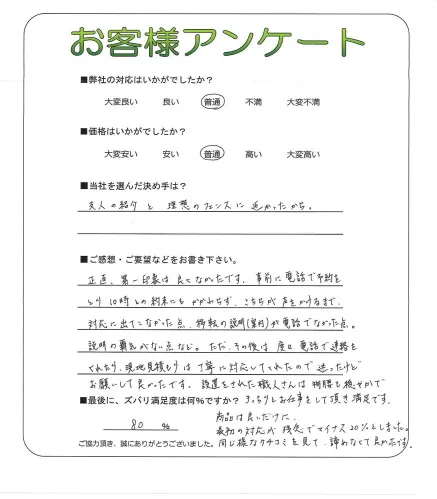 お客様アンケート
■弊社の対応はいかがでしたか?
大変良い 良い 普通 不満 大変不満
■価格はいかがでしたか?
大変安い 安い 普通 高い 大変高い
■当社を選んだ決め手は?
友人の紹介と理想のフェンスに近かったから。
■ご感想・ご要望などをお書き下さい。
正直、第一印象は良くなかったです。事前に電話で予約を
とり10時との約束にもかかわらず、こちらが声をかけるまで、
対応に出てこなかった点、移転の説明(案内)が電話でなかった点。
説明の覇気がない点など。ただ、その後は度々電話で連絡を
くれたり、現地見積もりは丁寧に対応してくれたので迷ったけど
お願いして良かったです。設置をされた職人さんは物腰も穏やかで
■最後に、ズバリ満足度は何%ですか? きっちりとお仕事をして頂き満足です。
商品は良いだけに、
80 % 最初の対応が残念でマイナス20%としました。
ご協力頂き、誠にありがとうございました。 同じ様なクチコミを見て、諦めなくて良かったです。